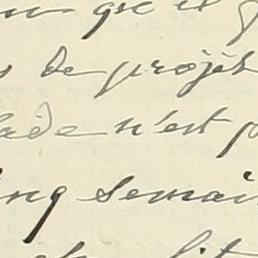 que et
de projèt
lade n'est p
inq semain